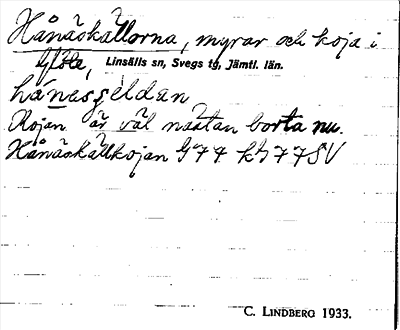 Hånäskällorna, myrar och koja i
Glöte, Linsälls sn, Svegs tg, Jämtl. län.
hå̀nesʃeldan
Kojan är väl nästan borta nu.
Hånäskällkojan G74 kh77SV
C. LINDBERG 1933.